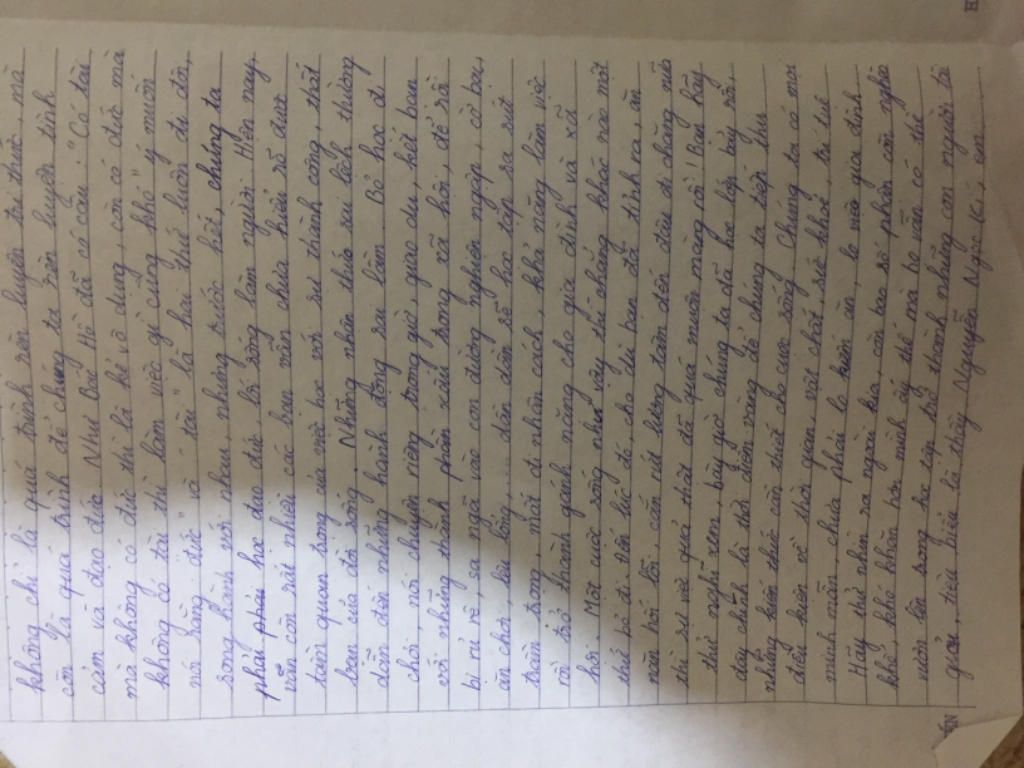 không chỉ là quá trình rèn luyện tri thức, mà
còn là quá trình để chúng ta rèn luyện tình
cảm và đạo đức. Như Bác Hồ đã có câu: "Có tài
mà không có đức thì là kẻ vô dụng, còn có đức mà
không có tài thì làm việc gì cũng khó" ý muốn
nói rằng "đức" và "tài" là hai thứ luôn đi đôi,
song hành với nhau, nhưng trước hết, chúng ta
phải phải học đạo đức, lối sống làm người. Hiện nay,
vẫn còn rất nhiều các bạn vẫn chưa hiểu rõ được
tầm quan trọng của việc học với sự thành công, thất
bại của đời sống. Những nhận thức sai lệch thường
dẫn đến những hành động sai lầm. Bỏ học đi
chơi, nói chuyện riêng trong giờ, giao du, kết bạn
với những thành phần xấu trong xã hội, để rồi
bị rủ rê, sa ngã vào con đường nghiện ngập, cờ bạc,
ăn chơi, lêu lổng,... dần dần sẽ học tập sa sút
trầm trọng, mất đi nhân cách, khả năng làm việc
rồi trở thành gánh nặng cho gia đình và xã
hội. Một cuộc sống như vậy thì chẳng khác nào một
thứ bỏ đi. Đến lúc đó, cho dù bạn đã tỉnh ra, ăn
năn hối lỗi, cắn rứt lương tâm đến đâu đi chăng nữa
thì sự việc quả thật đã quá muộn màng rồi! Bạn hãy
thử nghĩ xem, bây giờ chúng ta đã học lớp bảy rồi,
đây chính là thời điểm vàng để chúng ta tiếp thu
những kiến thức cần thiết cho cuộc sống. Chúng ta có mọi
điều kiện về thời gian, vật chất, sức khoẻ, trí tuệ
minh mẫn, chưa phải lo kiếm ăn, lo việc gia đình.
Hãy thử nhìn ra ngoài kia, còn bao số phận còn nghèo
khổ, khó khăn hơn mình ấy thế mà họ vẫn có thể
vươn lên trong học tập trở thành những con người tài
giỏi, tiêu biểu là thầy Nguyễn Ngọc Kí, em